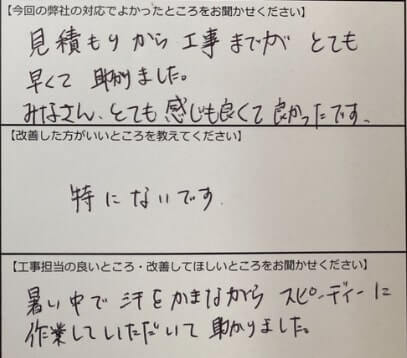 【今回の弊社の対応でよかったところをお聞かせください】
見積もりから工事までが とても
早くて 助かりました。
みなさん、とても感じも良くて良かったです。
【改善した方がいいところを教えてください】
特にないです.
【工事担当の良いところ・改善してほしいところをお聞かせください】
暑い中で 汗をかきながら スピーディーに
作業していただいて 助かりました。